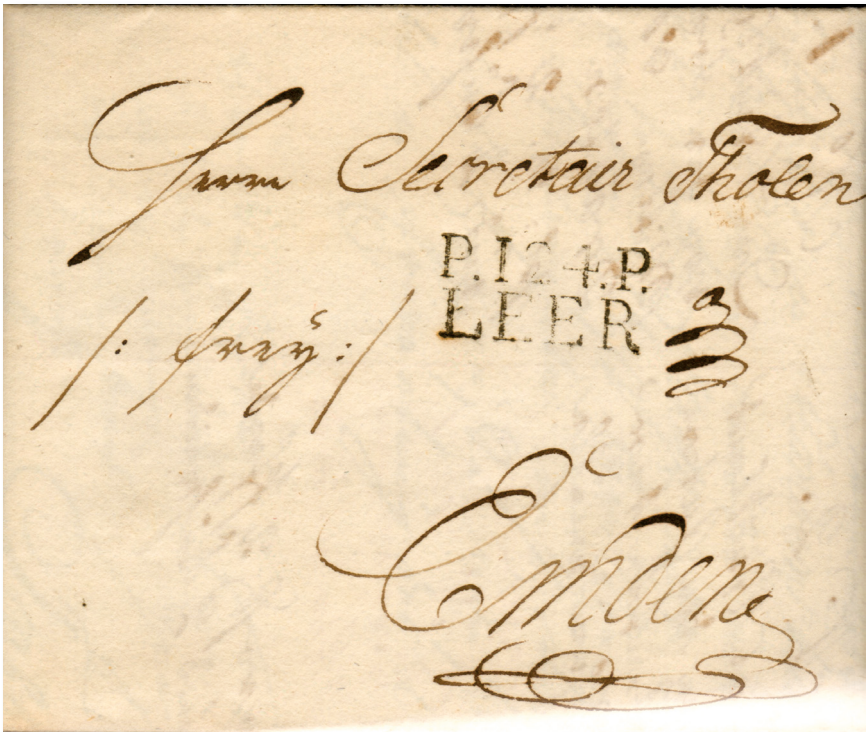 Herrn Secretair Tholen
P.124.P.
LEER
/: freÿ :/
Emden